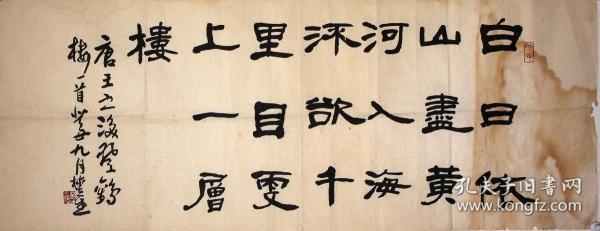 白日依
山盡黃
河入海
流欲千
里目更
上一層
樓
唐王之渙登鸛
樓一首 九月
孔夫子旧书网
www.kongfz.com